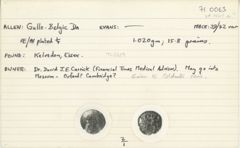 71 0063
ALLEN: Gallo-Belgic Da EVANS: — MACK: 33/42 var
Æ/AV plated ¼ 1.020gm; 15.8 grains.
FOUND: Kelvedon, Essex.
OWNER: Dr. David J.E. Carrick (Financial Times Medical Advisor). May go into
Museum - Oxford? Cambridge?
2